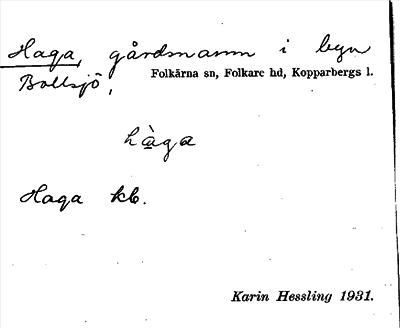 Haga, gårdsnamn i byn
Bollsjö,
Folkärna sn, Folkare hd, Kopparbergs l.
hàga
Haga kb.
Karin Hessling 1931.